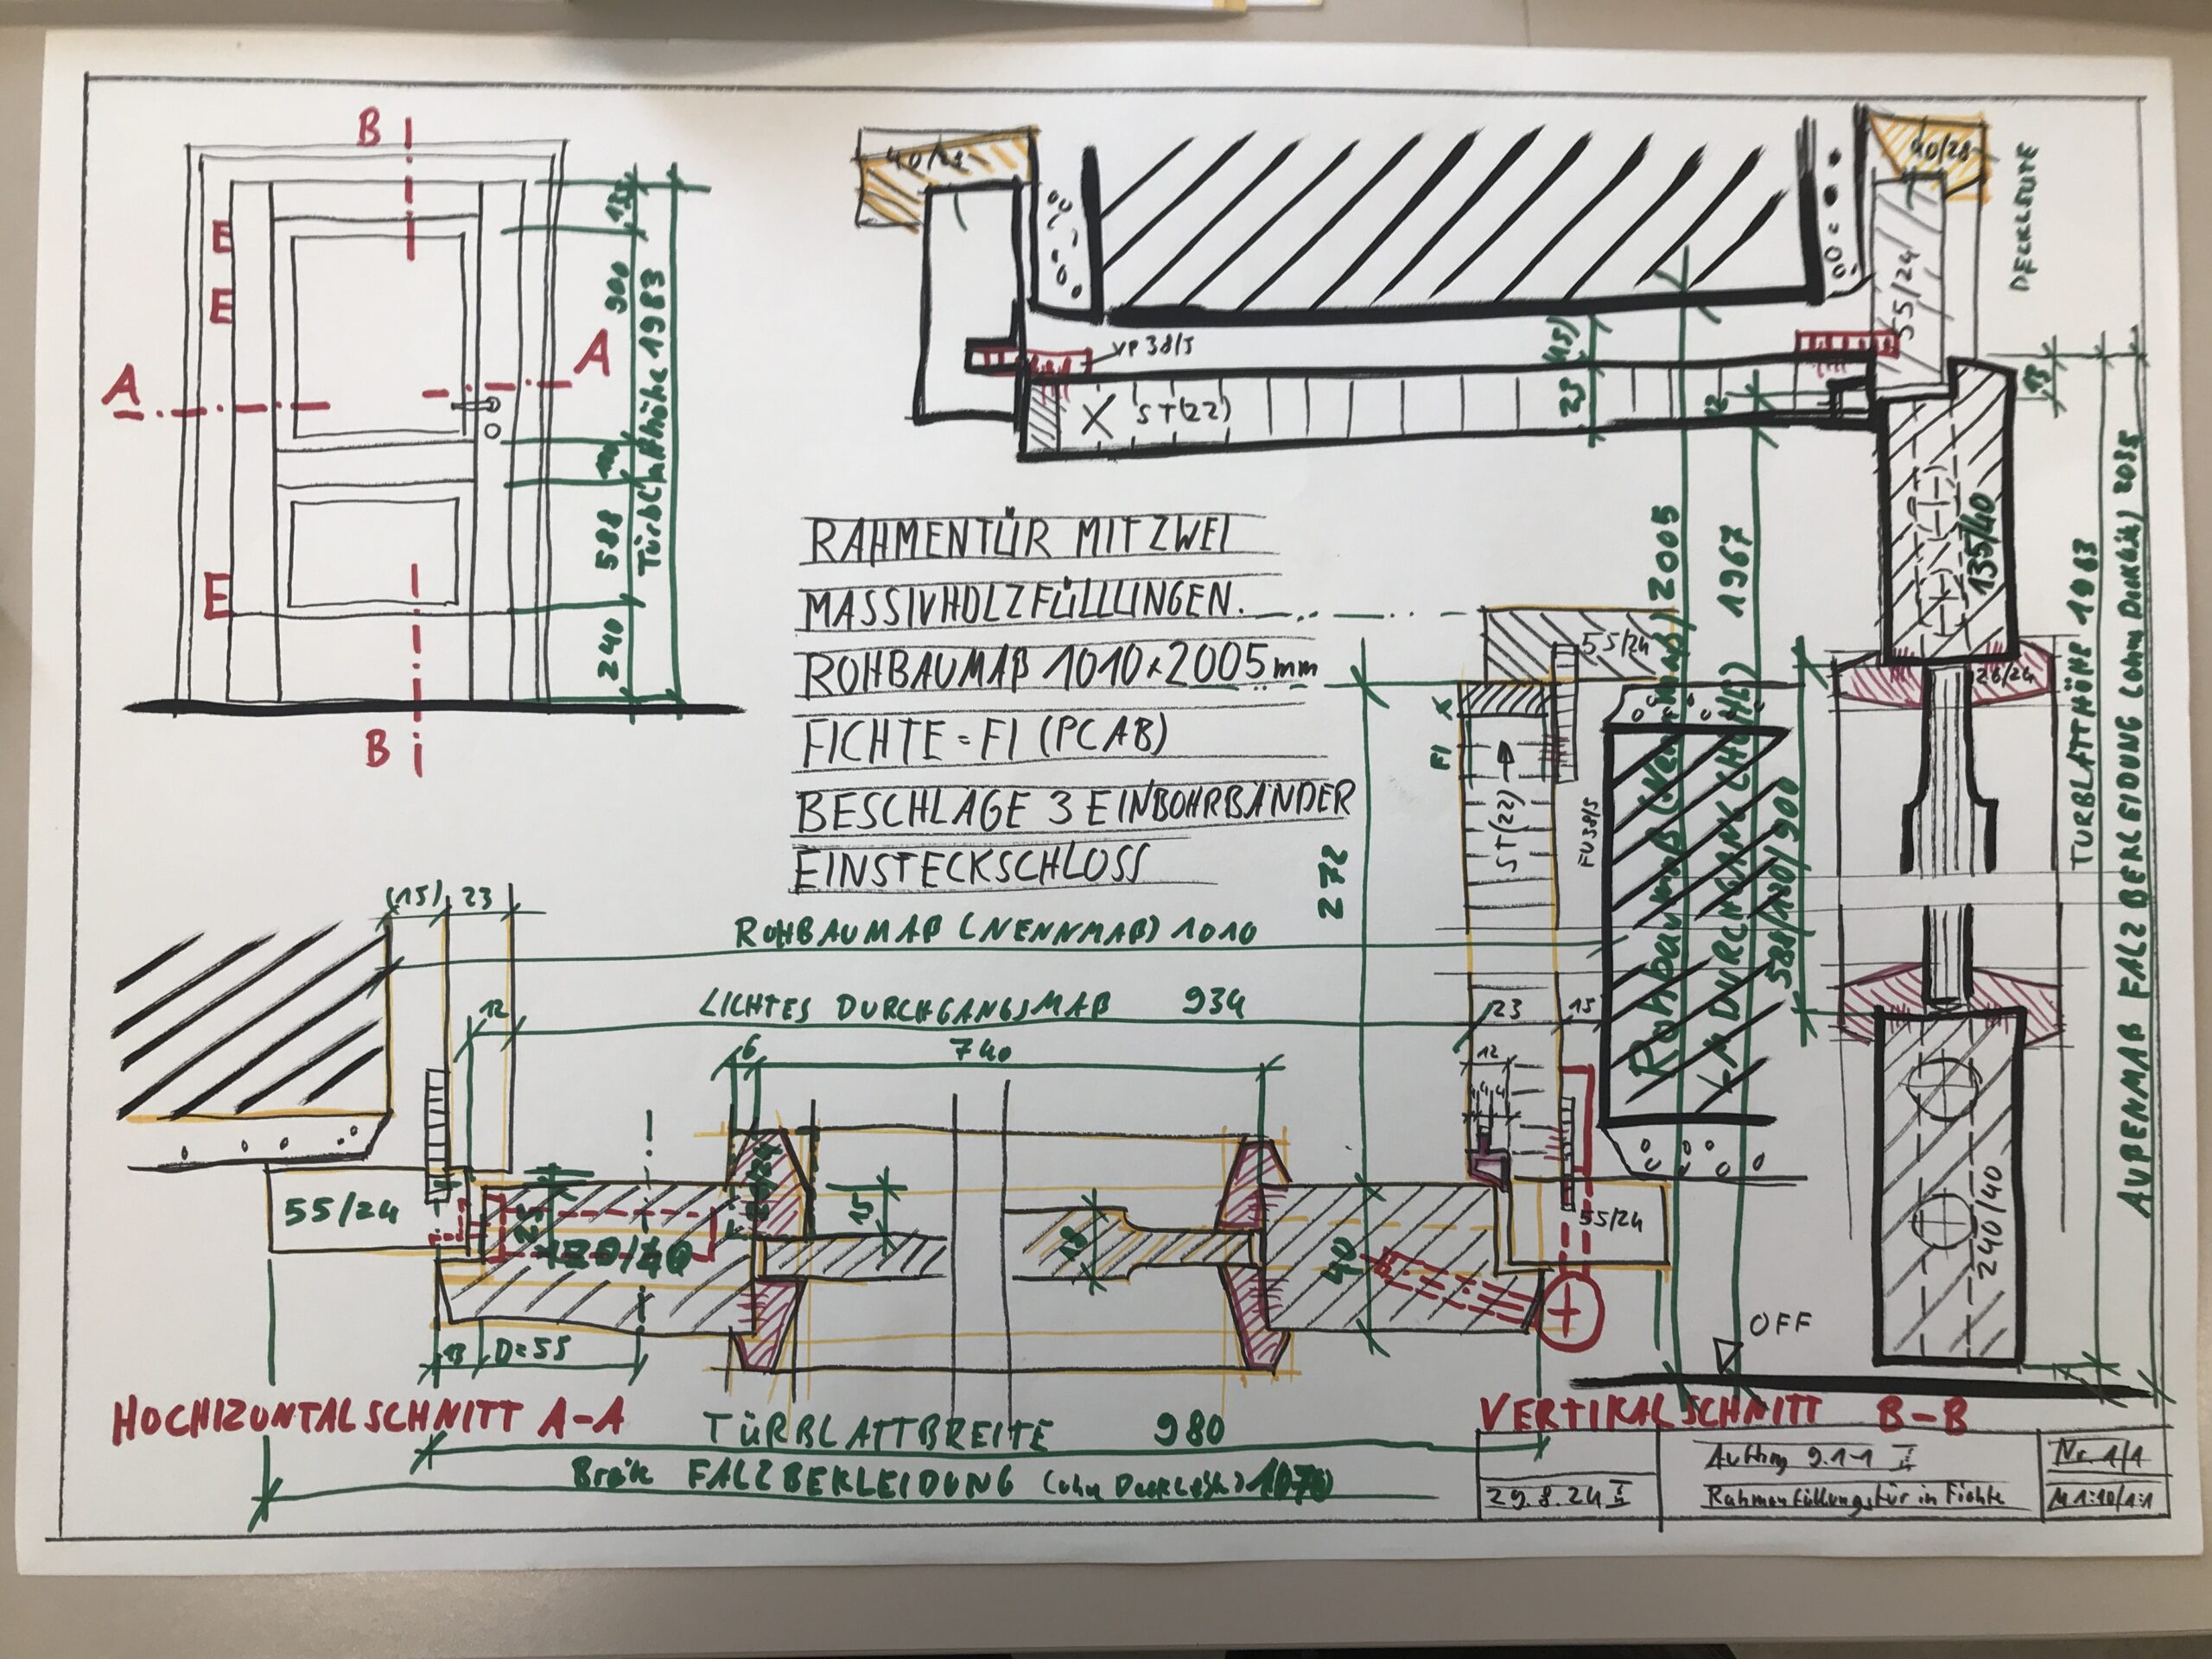 B
E
E
A
A
E
B
135
900
100
588
240
Türblatthöhe 1983
40/28
55/24
DECKLEISTE
VP 38/5
X ST(22)
(15)
23
12
13
135/40
26/24
RAHMENTÜR MIT ZWEI
MASSIVHOLZFÜLLLUNGEN.
ROHBAUMAß 1010 x 2005 mm
FICHTE = FI (PCAB)
BESCHLAGE 3 EINBOHRBÄNDER
EINSTECKSCHLOSS
55/24
X
FI
ST(22)
FU 38/5
272
2005
1967
588/120/900
TÜRBLATTHÖHE 1983
AUßENMAß FALZBEKLEIDUNG (ohne Deckleiste) 2035
240/40
OFF
(15) 23
ROHBAUMAß (NENNMAß) 1010
12
LICHTES DURCHGANGSMAß 934
23
15
12
4 4
6
740
55/24
120/40
15
18
40
55/24
13
D=55
HOCHIZONTALSCHNITT A-A
VERTIKALSCHNITT B-B
TÜRBLATTBREITE 980
Breite FALZBEKLEIDUNG (ohne Deckleiste) 1070
29.8.24
Auftrag 9.1-1 II
Rahmenfüllungstür in Fichte
Nr. 1/1
M 1:10/1:1